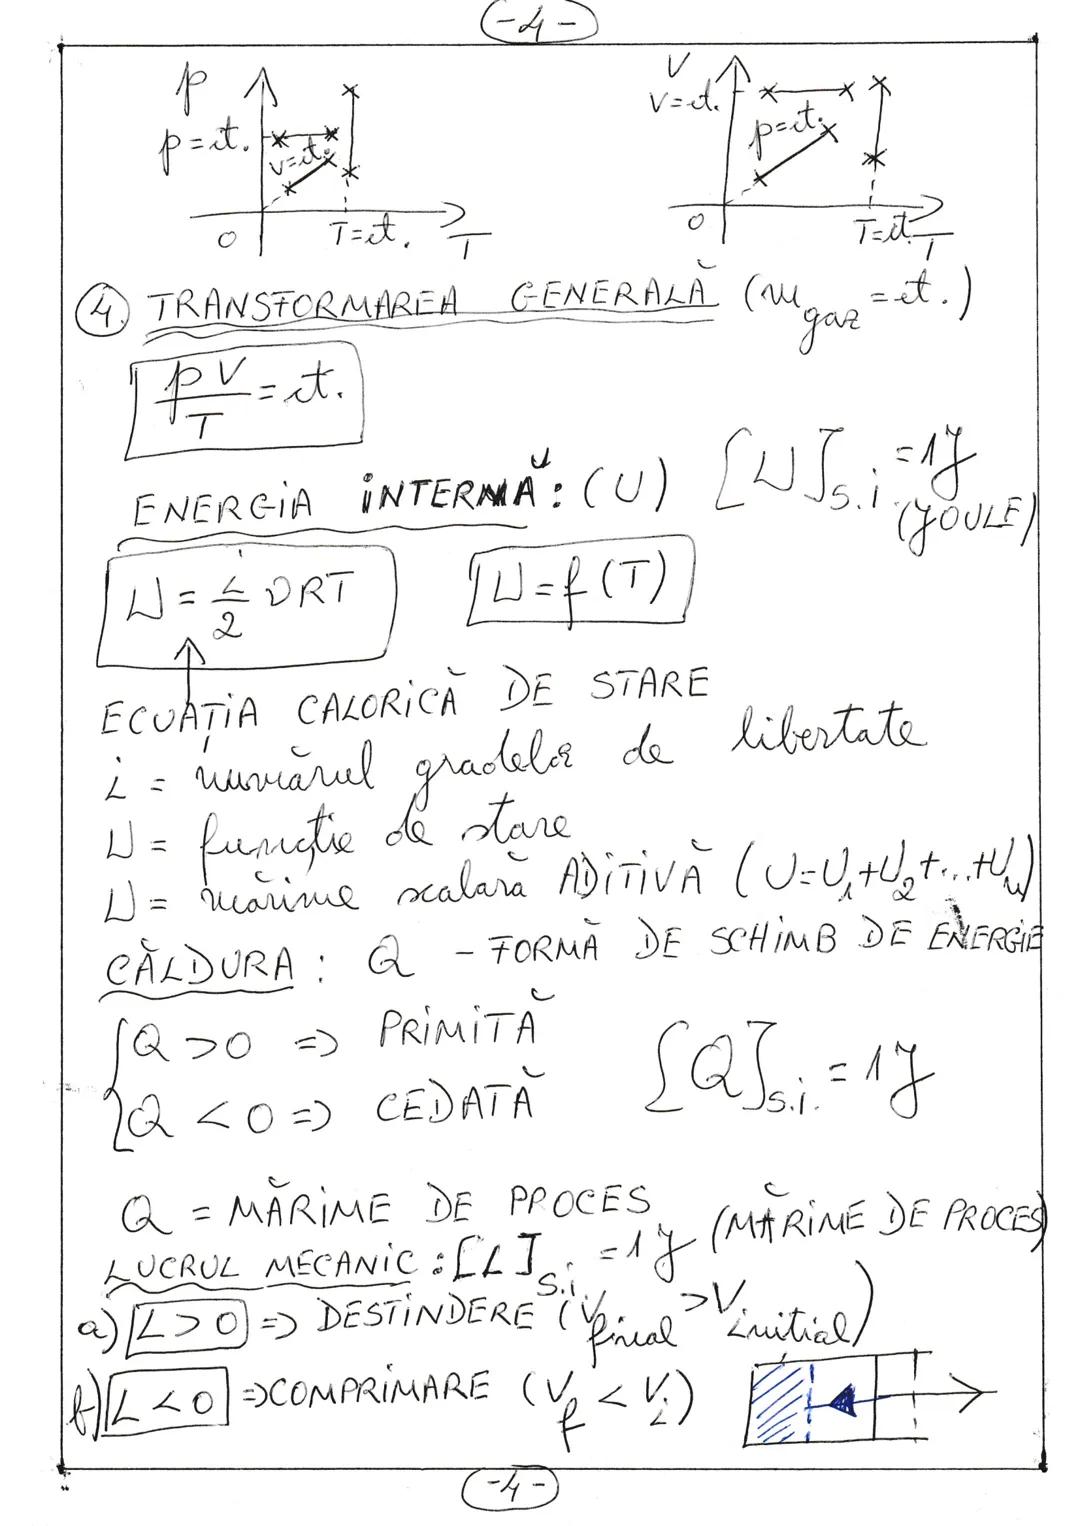 -4-
p V
p=ct. V=ct.
v=ct. p=ct.
0 T=ct. T 0 T=ct. T
4. TRANSFORMAREA GENERALĂ (m gaz = ct.)
pV/T = ct.
ENERGIA INTERNĂ: (U) [U]S.i. = 1J
(JOULE)
U = i/2 νRT U = f(T)
ECUAȚIA CALORICĂ DE STARE
i = numărul gradelor de libertate
U = funcție de stare
U = mărime scalară ADITIVĂ (U=U1+U2+...+Un)
CĂLDURA: Q - FORMĂ DE SCHIMB DE ENERGIE
Q > 0 => PRIMITĂ
Q < 0 => CEDATĂ [Q]S.i. = 1J
Q = MĂRIME DE PROCES
LUCRUL MECANIC: [L]S.i. = 1J (MĂRIME DE PROCES)
a) L > 0 => DESTINDERE (Vfinal > Vinitial)
b) L < 0 => COMPRIMARE (Vf < Vi)
-4-